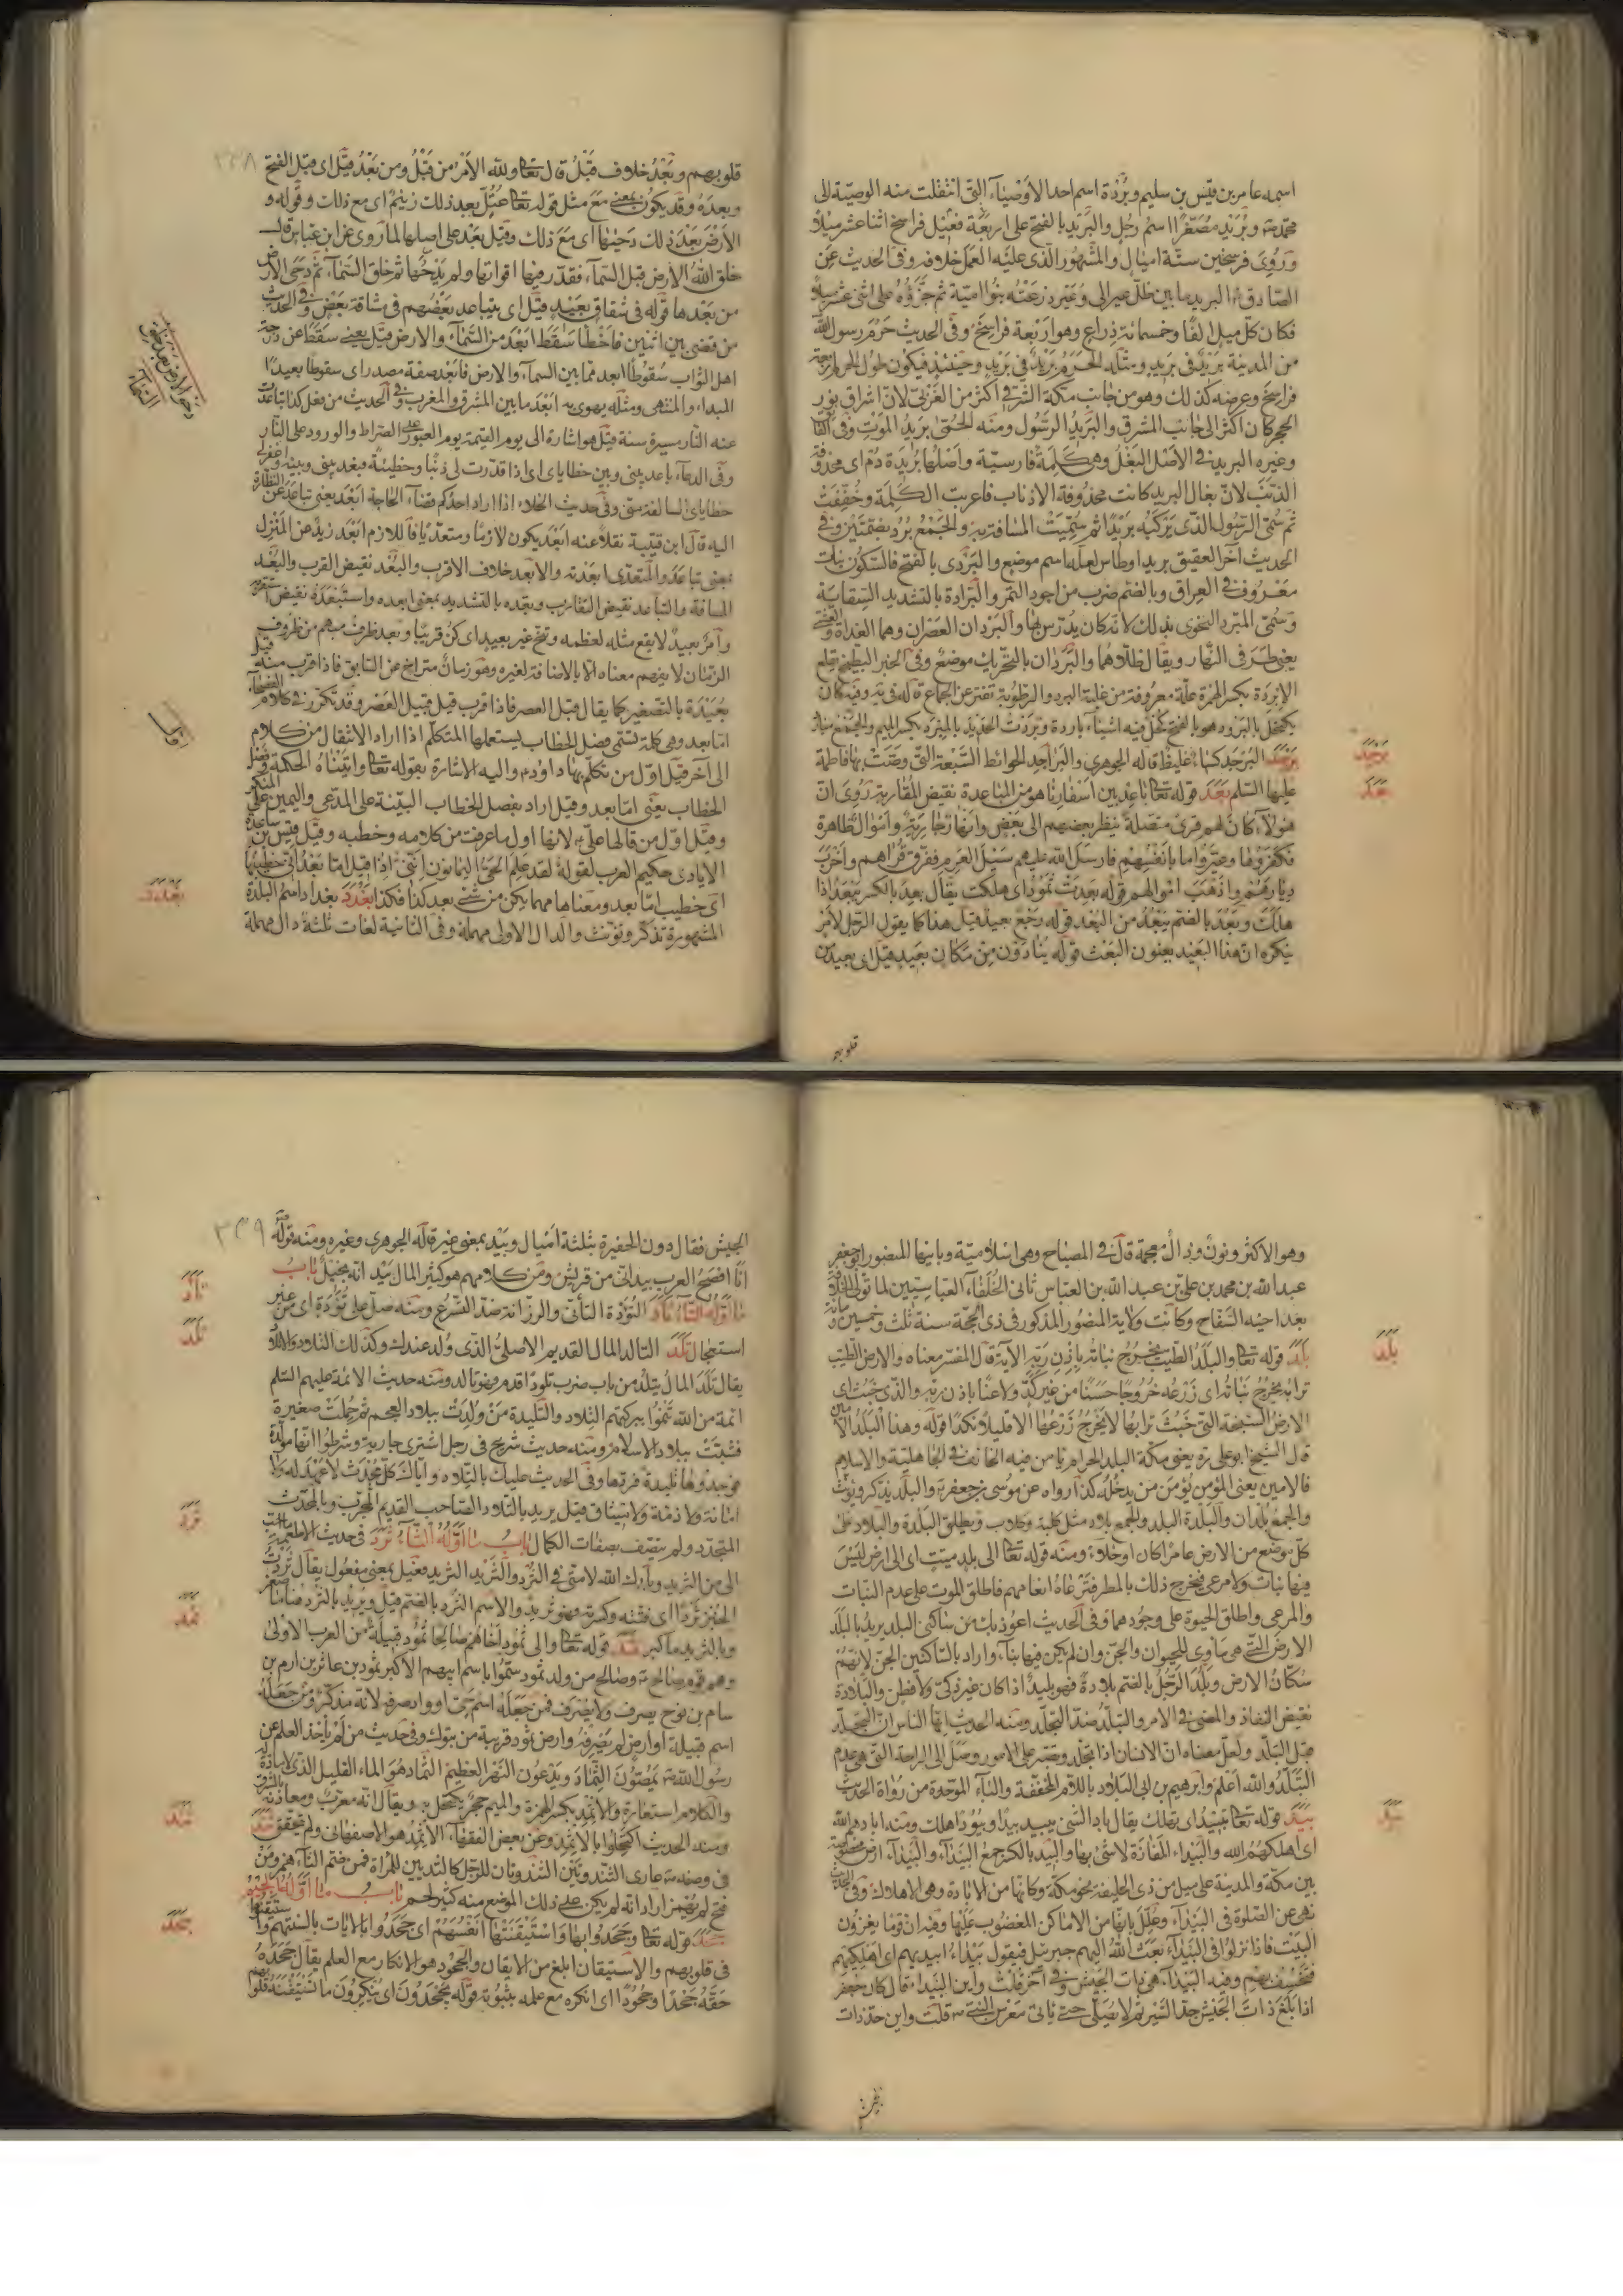 اسمه عامر بن قيس بن سليم وبردة اسم احد الاوصياء التى انتقلت منه الوصية الى
محمد وبريد مصغرا اسم رجل والبريد بالفتح على اربعة فراسخ اثنا عشر ميلا
وروى فرسخين ستة اميال والمشهور الذى عليه العمل خلافه وفى الحديث عن
الصادق البريد ما بين ظل عير الى وعير ذرعته بنو امية ثم جزؤه على اثنى عشر ميلا
فكان كل ميل الفا وخمسمائة ذراع وهو اربعة فراسخ وفى الحديث حرم رسول الله
من المدينة بريدا فى بريد ومثله الحرم بريد فى بريد وحينئذ فيكون طول الحرم اربعة
فراسخ وعرضه كذلك وهو من جانب مكة الشرقى اكثر من الغربى لان اشراق نور
الحجر كان اكثر الى جانب المشرق والبريد الرسول ومنه الحمى بريد الموت وفى
وغيره البريد فى الاصل البغل وهى كلمة فارسية واصلها بريدة دم اى محذوفة
الذنب لان بغال البريد كانت محذوفة الاذناب فاعربت الكلمة وخففت
ثم سمى الرسول الذى يركبه بريدا ثم سميت المسافة به والجمع برد بضمتين وفى
الحديث آخر العقيق بريد اوطاس لعله اسم موضع والبردى بالفتح فالسكون نبات
معروف فى العراق وبالضم ضرب من اجود التمر والبرادة بالتشديد السقاية
وسمى المبرد النحوى بذلك لانه كان يدرس بها والبردان العصران وهما الغداة والعشى
يعنى طرفى النهار ويقال ظلاهما والبردان بالتحريك موضع وفى الخبر البطيخ يقلع
الابردة بكسر الهمزة علة معروفة من غلبة البرد والرطوبة تفتر عن الجماع
برجد البرجد كساء غليظ قاله الجوهرى والبراجد الحوائط السبعة التى وصت بها فاطمة
عليها السلم بعد قوله تعا باعد بين اسفارنا هو من المباعدة نقيض المقاربة روى ان
هؤلاء كان لهم قرى متصلة ينظر بعضهم الى بعض وانهار جارية واموال ظاهرة
فكفروها وغيروا ما بانفسهم فارسل الله عليهم سيل العرم ففرق قراهم واخرب
ديارهم واذهب اموالهم قوله بعدت ثمود اى هلكت يقال بعد بالكسر يبعد اذا
هلك وبعد بالضم يبعد من البعد قوله رجع بعيد قيل هذا كما يقول الرجل لامر
ينكره ان هذا البعيد يعنون البعث قوله ينادون من مكان بعيد قيل اى بعيد من
برجد
بعد
قلوبهم
٣٣٨
قلوبهم وبعد خلاف قبل قال تعا ولله الامر من قبل ومن بعد قيل اى قبل الفتح
وبعده وقد يكون بمعنى مع مثل قوله تعا عتل بعد ذلك زنيم اى مع ذلك وقوله و
الارض بعد ذلك دحيها اى مع ذلك وقيل بعد على اصلها لما روى عن ابن عباس قال
خلق الله الارض قبل السماء فقدر فيها اقواتها ولم يدحها ثم خلق السماء ثم دحى الارض
من بعدها قوله فى شقاق بعيد قيل اى يتباعد بعضهم فى مشاقة بعض وفى الحديث
من قضى بين اثنين فاخطأ سقط ابعد من السماء والارض قيل يعنى سقط عن درجة
اهل الثواب سقوطا ابعد مما بين السماء والارض فابعد صفة مصدر اى سقوطا بعيدا
المبداء والمنتهى ومثله يهوى به ابعد ما بين المشرق والمغرب وفى الحديث من فعل كذا تباعدت
عنه النار مسيرة سنة قيل هو اشارة الى يوم القيمة يوم العبور على الصراط والورود على النار
وفى الدعاء باعد بينى وبين خطاياى اى اذا قدرت لى ذنبا وخطيئة فبعد بينى وبينه واغفر لى
خطاياى السالفة منى وفى حديث الخلاء اذا اراد احدكم قضاء الحاجة ابعد يعنى تباعد عن النظارة
اليه قال ابن قتيبة نقلا عنه ابعد يكون لازما ومتعديا فاللازم ابعد زيد عن المنزل
بمعنى تباعد والمتعدى ابعدته والابعد خلاف الاقرب والبعد نقيض القرب والبعد
المسافة والتباعد نقيض التقارب وبعده بالتشديد بمعنى ابعده واستبعده نقيض استقربه
وامر بعيد لا يقع مثله لعظمه وتنح غير بعيد اى كن قريبا وبعد ظرف مبهم من ظروف
الزمان لا يفهم معناه الا بالاضافة لغيره وهو زمان متراخ عن السابق فاذا قرب منه قيل
بعيدة بالتصغير كما يقال قبل العصر فاذا قرب قيل قبيل العصر وقد تكرر فى كلام الفصحاء
اما بعد وهى كلمة تسمى فصل الخطاب يستعملها المتكلم اذا اراد الانتقال من كلام
الى آخر قيل اول من تكلم بها داود واليه الاشارة بقوله تعا واتيناه الحكمة وفصل
الخطاب يعنى اما بعد وقيل اراد بفصل الخطاب البينة على المدعى واليمين على المنكر
وقيل اول من قالها على لانها اول ما عرفت من كلامه وخطبه وقيل قيس بن ساعدة
الايادى حكيم العرب لقوله لقد علم الحى اليمانون اننى اذا قيل اما بعد انى خطيبها
اى خطيب اما بعد ومعناها مهما يكن من شئ بعد كذا فكذا بغدد بغداد اسم البلدة
المشهورة تذكر وتؤنث والدال الاولى مهملة وفى الثانية لغات ثلثة دال مهملة
بغدد
وهو الاكثر ونون وذال معجمة قال فى المصباح وهى اسلامية وبانيها المنصور ابو جعفر
عبد الله بن محمد بن على بن عبد الله بن العباس ثانى الخلفاء العباسيين لما تولى الخلافة
بعد اخيه السفاح وكانت ولاية المنصور المذكور فى ذى الحجة سنة ثلث وخمسين ومائة
بلد قوله تعا والبلد الطيب يخرج نباته باذن ربه الآية قال المفسر معناه والارض الطيب
ترابه يخرج نباته اى زرعه خروجا حسنا من غير كد ولا عناء باذن ربه والذى خبث اى
الارض السبخة التى خبث ترابها لا يخرج زرعها الا قليلا نكدا قوله وهذا البلد الامين
قال الشيخ ابو على ره يعنى مكة البلد الحرام يأمن فيه الخائف فى الجاهلية والاسلام
فالامين يعنى المؤمن يؤمن من يدخله كذا رواه عن موسى بن جعفر والبلد يذكر ويؤنث
والجمع بلدان والبلدة البلد والجمع بلاد مثل كلبة وكلاب ويطلق البلدة والبلاد على
كل موضع من الارض عامرا كان او خلاء ومنه قوله تعا الى بلد ميت اى الى ارض ليس
فيها نبات ولا مرعى فيخرج ذلك بالمطر فترعاه انعامهم فاطلق الموت على عدم النبات
والمرعى واطلق الحيوة على وجودهما وفى الحديث اعوذ بك من ساكنى البلد يريد بالبلد
الارض التى هى مأوى للحيوان والجن وان لم يكن فيها بناء واراد بالساكنين الجن لانهم
سكان الارض وبلد الرجل بالضم بلادة فهو بليد اذا كان غير ذكى ولا فطن والبلادة
نقيض النفاذ والمضى فى الامر والتبلد ضد التجلد ومنه الحديث ايها الناس ان التجلد
قبل التبلد ولعل معناه ان الانسان اذا تجلد وصبر على الامور وصل الى الراحة التى هى عدم
التبلد والله اعلم وابرهيم بن ابى البلاد باللام المخففة والباء الموحدة من رواة الحديث
بيد قوله تعا تبيد اى تهلك يقال باد الشئ يبيد بيدا وبيودا هلك ومنه ابادهم الله
اى اهلكهم الله والبيداء المفازة لا شئ بها والبيد بالكسر جمع البيداء والبيداء ارض مخصوصة
بين مكة والمدينة على ميل من ذى الحليفة نحو مكة وكانها من الابادة وهى الاهلاك وفى الحديث
نهى عن الصلوة فى البيداء وعلل بانها من الاماكن المغضوب عليها وفيه ان قوما يغزون
البيت فاذا نزلوا فى البيداء بعث الله اليهم جبرئيل فيقول يا بيداء ابيديهم اى اهلكيهم
فتخسف بهم وفيه البيداء هى ذات الجيش وفى آخر قلت واين البيداء قال كان جعفر
اذا بلغ ذات الجيش جد السير ثم لا يصلى حتى يأتى معرس النبى قلت واين حد ذات
بلد
بيد
٣٣٩
الجيش فقال دون الحفيرة بثلثة اميال وبيد بمعنى غير قاله الجوهرى وغيره ومنه قوله
انا افصح العرب بيد انى من قريش ومن كلامهم هو كثير المال بيد انه بخيل باب
ما اوله التاء تأد التؤدة التأنى والرزانة ضد التسرع ومنه صل على تؤدة اى من غير
استعجال تلد التالد المال القديم الاصلى الذى ولد عندك وكذلك التلاد والاتلاد
يقال تلد المال يتلد من باب ضرب تلودا قدم فهو تالد ومنه حديث الائمة عليهم السلم
ائمة من الله تنموا ببركتهم التلاد والتليدة من ولدت ببلاد العجم ثم حملت صغيرة
فنبتت ببلاد الاسلام ومنه حديث شريح فى رجل اشترى جارية وشرطوا انها مولدة
فوجدوها تليدة فردها وفى الحديث عليك بالتلاد واياك كل محدث لا عهد له ولا
امانة ولا ذمة ولا ميثاق قيل يريد بالتلاد الصاحب القديم المجرب وبالمحدث
المتجدد ولم يتصف بصفات الكمال باب ما اوله الثاء ثرد فى حديث
الى من الثريد وبارك الله لامتى فى الثرد والثريد الثريد فعيل بمعنى مفعول يقال ثردت
الخبز ثردا اى فتته وكسرته فهو ثريد والاسم الثرد بالضم قيل ويريد بالثرد هنا ما صغر
وبالثريد ما كبر ثمد قوله تعا والى ثمود اخاهم صالحا ثمود قبيلة من العرب الاولى
وهم قوم صالح وصالح من ولد ثمود سموا باسم ابيهم الاكبر ثمود بن عاثر بن ارم بن
سام بن نوح يصرف ولا يصرف فمن جعله اسم حى او واد صرفه لانه مذكر ومن جعله
اسم قبيلة او ارض لم يصرفه وارض ثمود قريبة من تبوك وفى حديث من لم يأخذ العلم عن
رسول الله يمصون الثماد ويدعون النهر العظيم الثماد هو الماء القليل الذى لا مادة له
والكلام استعارة والاثمد بكسر الهمزة والميم حجر يكتحل به ويقال انه معرب ومعادنه بالمشرق
ومنه الحديث اكتحلوا بالاثمد وعن بعض الفقهاء الاثمد هو الاصفهانى ولم يتحقق ثند
فى وصفه عارى الثندوتين الثندوتان للرجل كالثديين للمرأة فمن ضم الثاء همز ومن
فتح لم يهمز اراد انه لم يكن على ذلك الموضع منه كثير لحم باب ما اوله الجيم
جحد قوله تعا وجحدوا بها واستيقنتها انفسهم اى جحدوا بالايات بالسنتهم واستيقنوها
فى قلوبهم والاستيقان ابلغ من الايقان والجحود هو الانكار مع العلم يقال جحده
حقه جحدا وجحودا اى انكره مع علمه بثبوته قوله يجحدون اى ينكرون ما تستيقنه قلوبهم
تأد
تلد
ثرد
ثمد
ثند
جحد